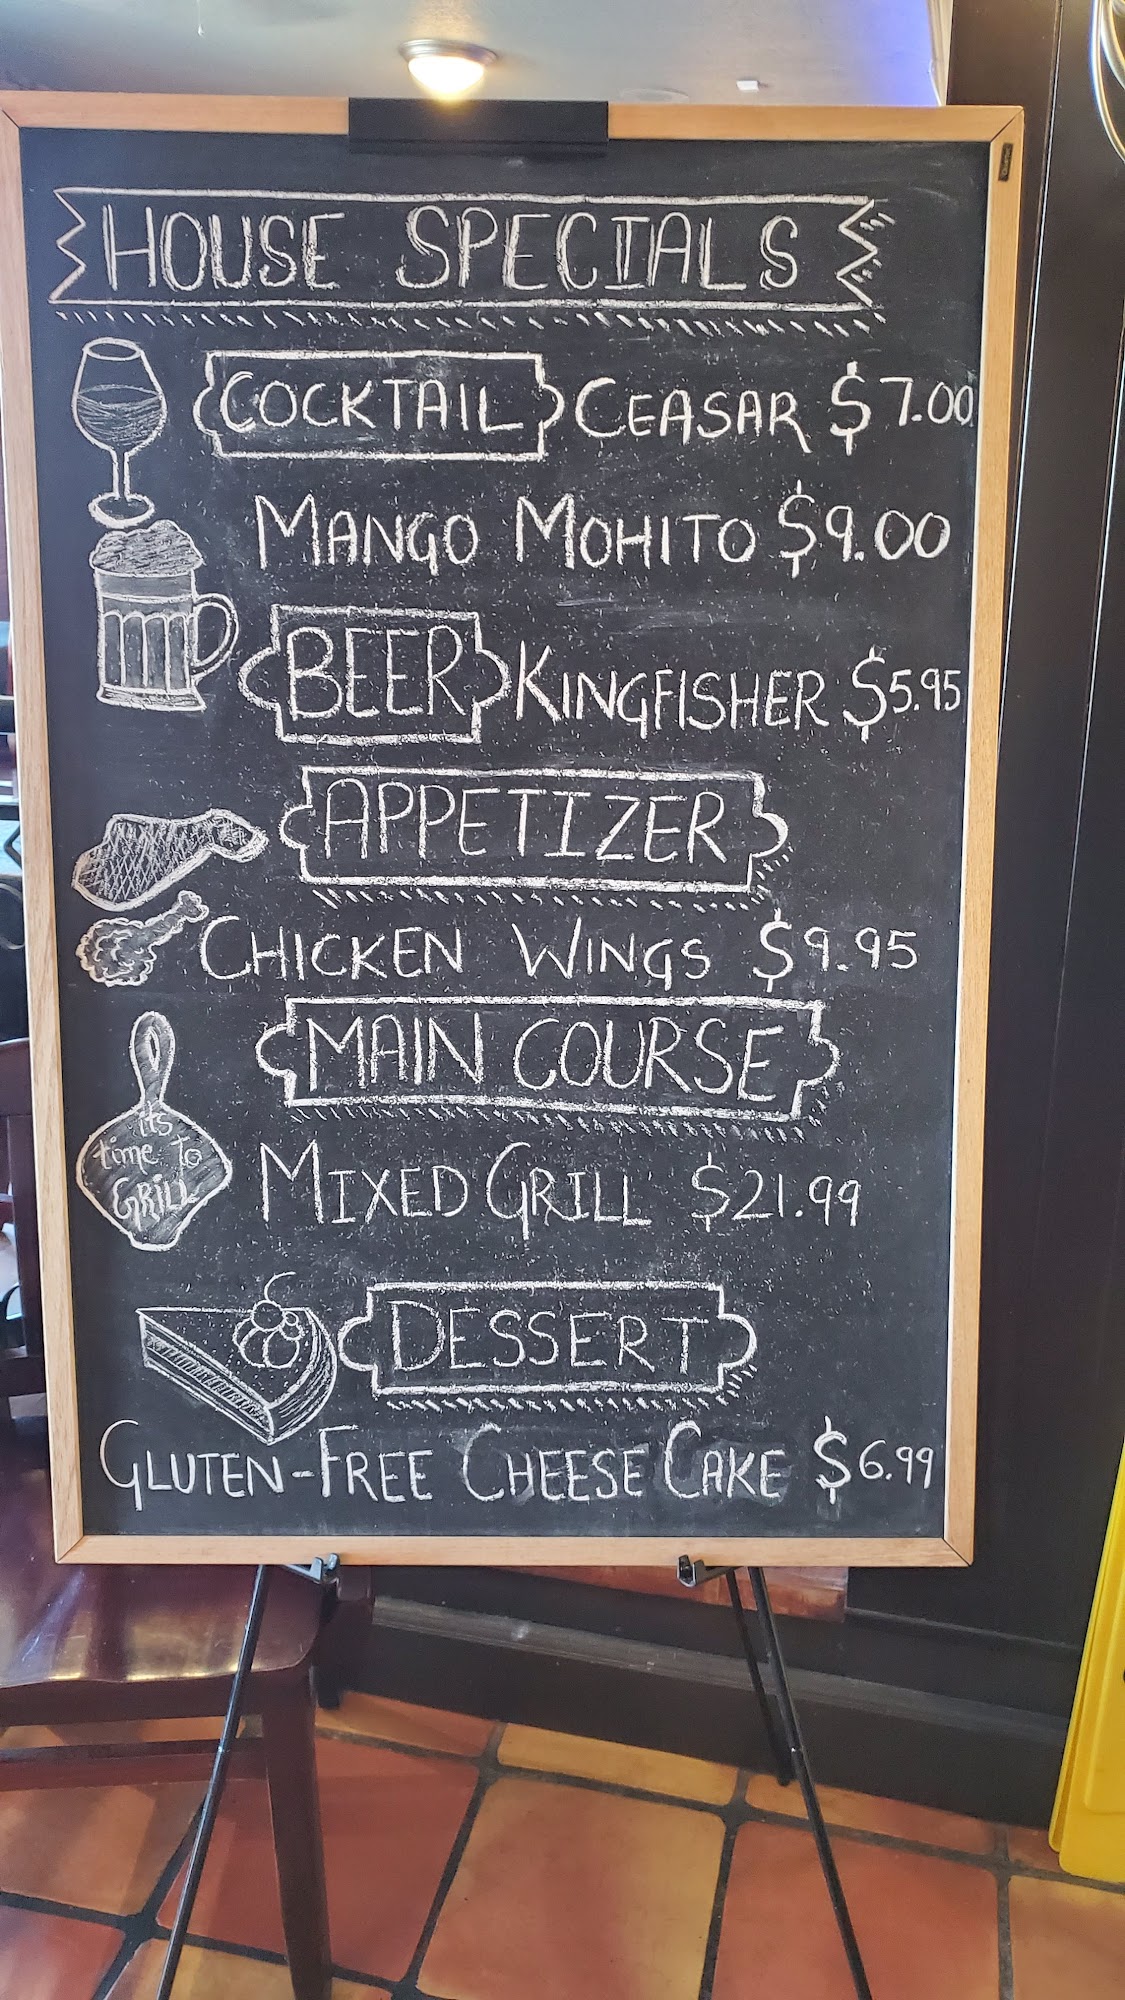 HOUSE SPECIALS
COCKTAIL CEASAR $7.00
MANGO MOHITO $9.00
BEER KINGFISHER $5.95
APPETIZER
CHICKEN WINGS $9.95
MAIN COURSE
its
time to
GRILL
MIXED GRILL $21.99
DESSERT
GLUTEN-FREE CHEESE CAKE $6.99